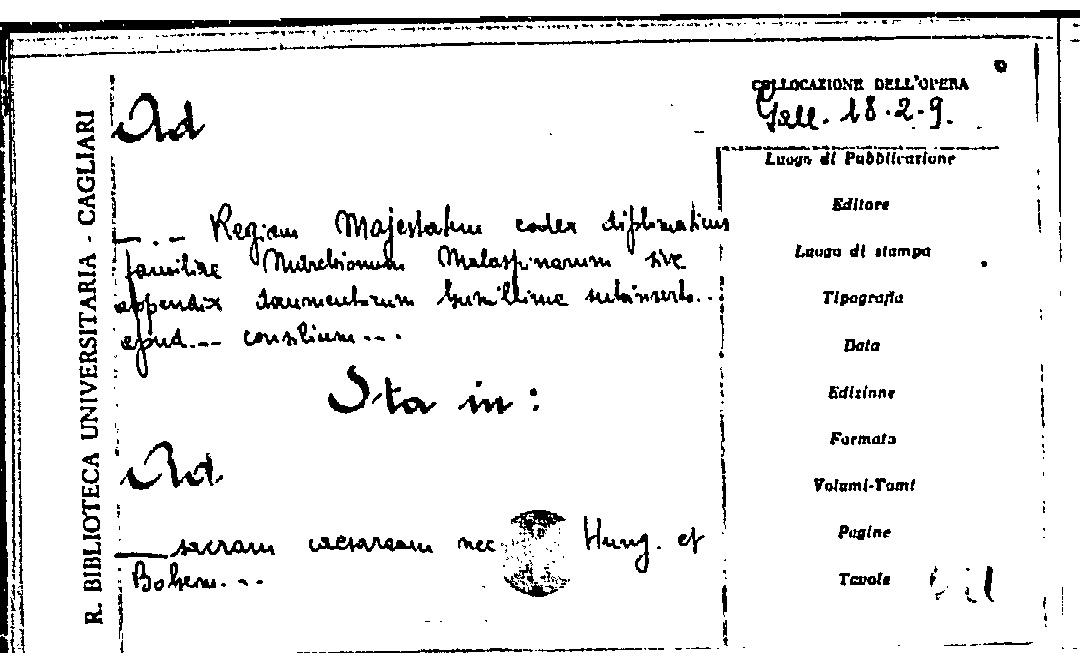 R. BIBLIOTECA UNIVERSITARIA - CAGLIARI
Ad
—.— Regiam Majestatem codex diplomaticus
familiae Marchionum Malaspinarum sive
appendix documentorum humillime subinserto...
apud... consilium...
Sta in:
Ad
— sacram caesaream nec Hung. et
Bohem...
COLLOCAZIONE DELL'OPERA
Gall. 18.2.9.
Luogo di Pubblicazione
Editore
Luogo di stampa
Tipografia
Data
Edizione
Formato
Volumi-Tomi
Pagine
Tavole